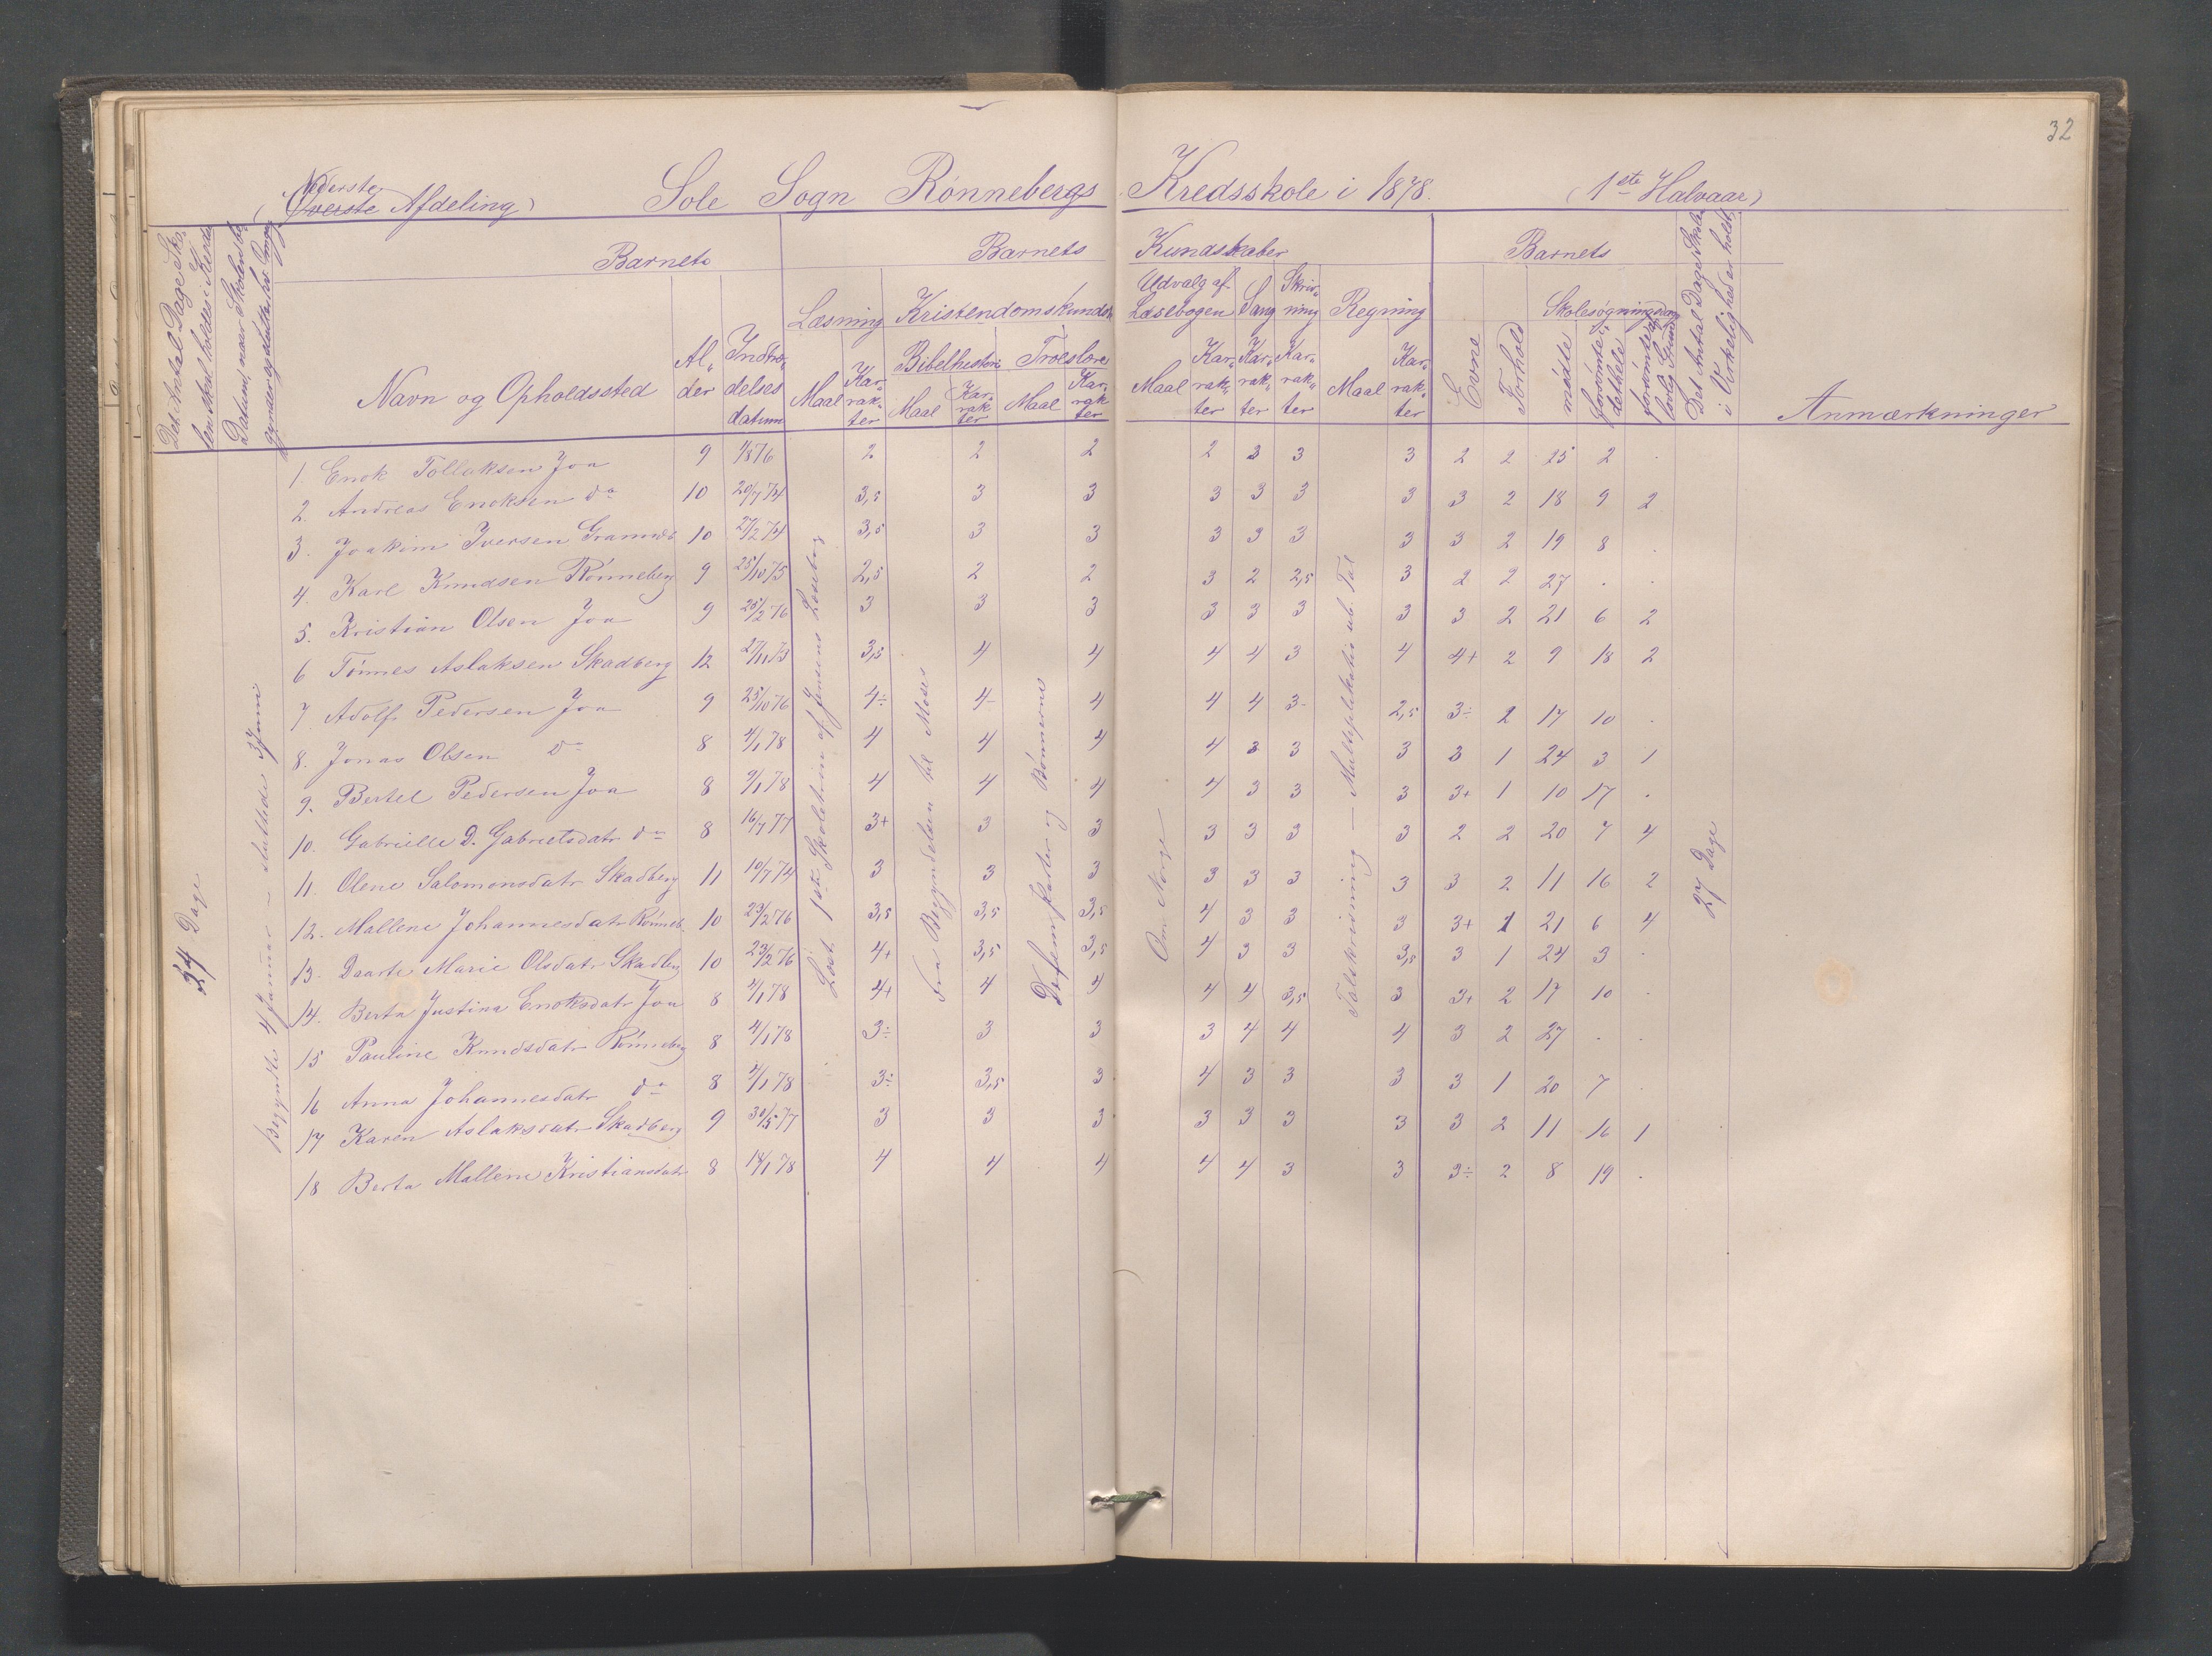 32
(Nederste Øverste Afdeling) Sole Sogn Rønnebergs Kredsskole i 1878. (1ste Halvaar)
Det Antal Dage Skolen skal holdes i Kreds
Datum, naar Skolen begynder og slutter hver Omgang
Barnets
Barnets Kundskaber
Barnets
Det Antal Dage Skolen i Virkelighed er holdt
Læsning Kristendomskundsk. Udvalg af Læsebogen Sang Skrivning Regning Evne Forhold Skolesøgningsdage
Navn og Opholdssted Alder Indtrædelsesdatum Maal Karrakter Bibelhistorie Maal Karrakter Troeslære Maal Karrakter Maal Karrakter Karrakter Karrakter Maal Karrakter mødte forsømte i dethele forsømte af lovlig Grund Anmærkninger
34 Dage
Begyndte 4 Januar – sluttede 3 Juni
Læst 1ste Skoletrin af Jensens Læsebog
Fra Begyndelsen til Moses
Om Norge
Talskrivning – Multiplikation
27 Dage
1. Enok Tollaksen Joa 9 1/8 76 2 2 2 2 3 3 3 2 2 25 2 .
2. Andreas Enoksen do 10 20/7 74 3,5 3 3 3 3 3 3 3 2 18 9 2
3. Joakim Iversen 10 27/2 74 3,5 3 3 3 3 3 3 3 2 19 8 .
4. Karl Knudsen Rønneberg 9 25/10 75 2,5 2 2 3 2 2,5 3 2 2 27 . .
5. Kristian Olsen Joa 9 25/2 76 3 3 3 3 3 3 3 3 2 21 6 2
6 Tønnes Aslaksen Skadberg 12 27/11 73 3,5 4 4 4 4 3 4 4+ 2 9 18 2
7. Adolf Pedersen Joa 9 25/10 76 4÷ 4– 4 4 4 3– 2,5 3÷ 2 17 10 .
8. Jonas Olsen do 8 4/1 78 4 4 4 4 3 3 3 3 1 24 3 1
9. Bertel Pedersen Joa 8 9/1 78 4 4 4 4 3 3 3 3+ 1 10 17 .
10. Gabrielle D. Gabrielsdatr do 8 16/7 77 3+ 3 3 3 3 3 3 2 2 20 7 4
11. Olene Salomonsdatr Skadberg 11 10/7 74 3 3 3 3 3 3 3 3 2 11 16 2
12. Mallene Johannesdatr Rønneb. 10 23/2 76 3,5 3,5 3,5 4 3 3 3 3+ 1 21 6 4
13. Daarte Marie Olsdatr Skadberg 10 23/2 76 4+ 3,5 3,5 4 3 3 3,5 3 1 24 3 .
14. Berta Justina Enoksdatr Joa 8 4/1 78 4+ 4 4 4 4 3,5 3 3+ 2 17 10 .
15 Pauline Knudsdatr Rønneberg 8 4/1 78 3÷ 3 3 3 4 4 4 3 2 27 . .
16 Anna Johannesdatr do 8 4/1 78 3÷ 3,5 3 4 3 3 3 3 1 20 7 .
17 Karen Aslaksdatr Skadberg 9 30/5 77 3 3 3 3 3 3 3 3 2 11 16 1
18 Berta Mallene Kristiansdatr 8 14/1 78 4 4 4 4 4 3 3 3÷ 2 8 19 .